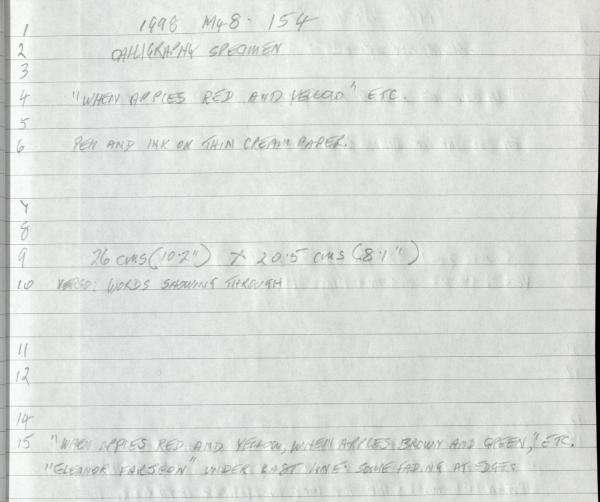 1 1998 M48. 154
2 CALLIGRAPHY SPECIMEN
3
4 "WHEN APPLES RED AND YELLOW" ETC.
5
6 PEN AND INK ON THIN CREAM PAPER.
7
8
9 26 cms (10.2") X 20.5 cms (8.1")
10 VERSO: WORDS SHOWING THROUGH
11
12
14
15 "WHEN APPLES RED AND YELLOW, WHEN APPLES BROWN AND GREEN," ETC.
"ELEANOR FARJEON" UNDER LAST LINE. SOME FADING AT EDGES